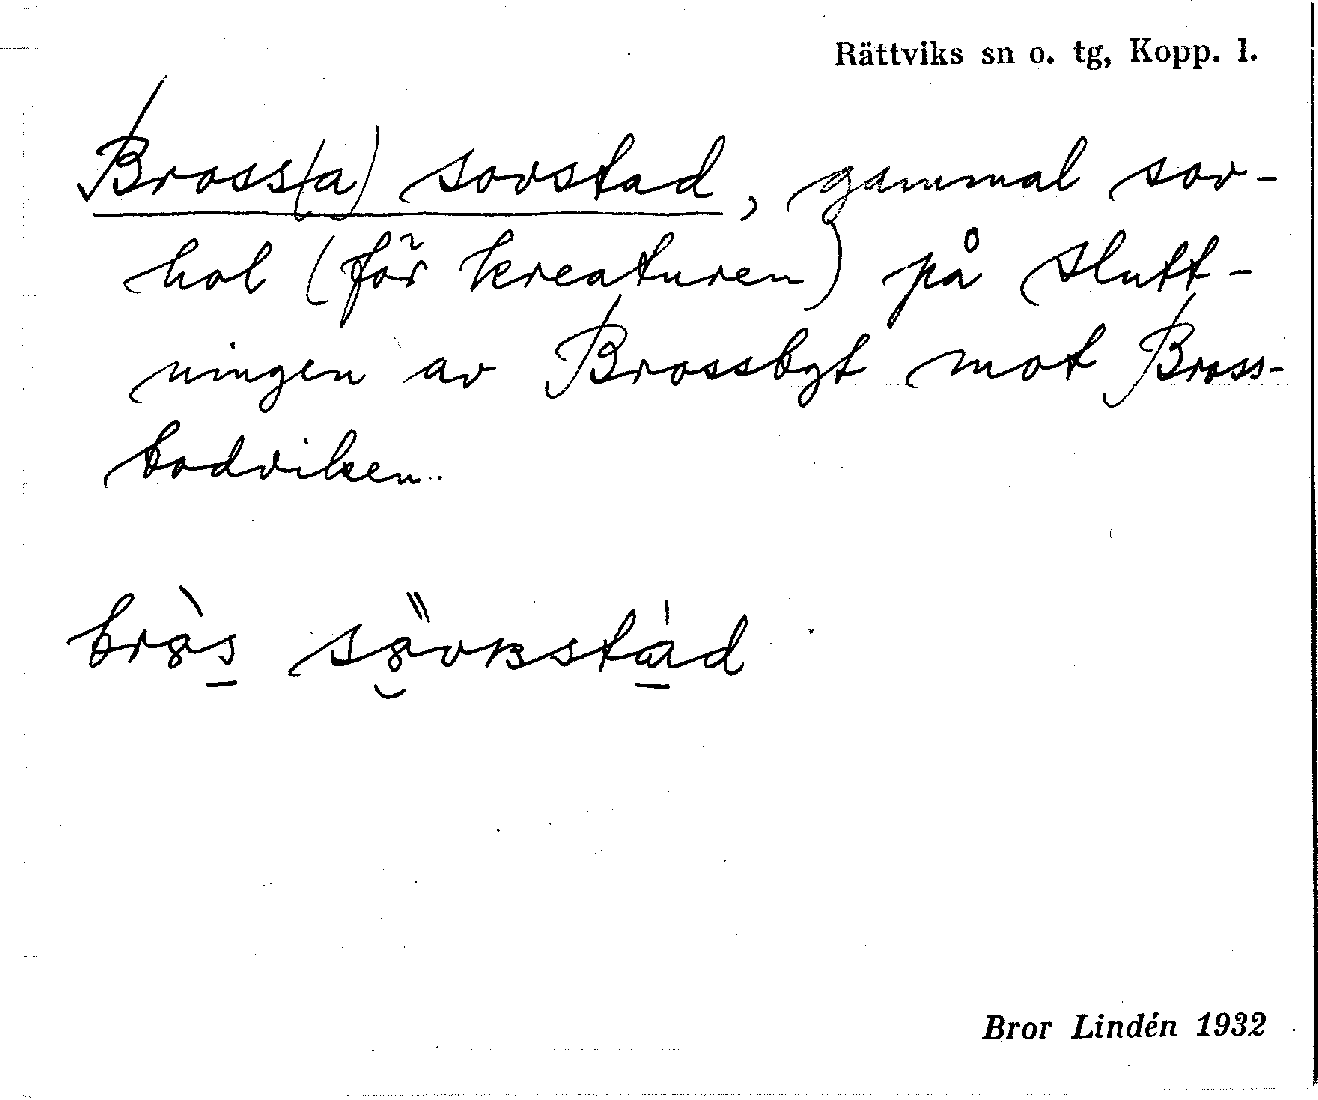 Rättviks sn o. tg, Kopp. l.
Bross(a) sovstad, gammal sov-
hol (för kreaturen) på slutt-
ningen av Brossbgt mot Bross-
bodviken.
Bror Lindén 1932